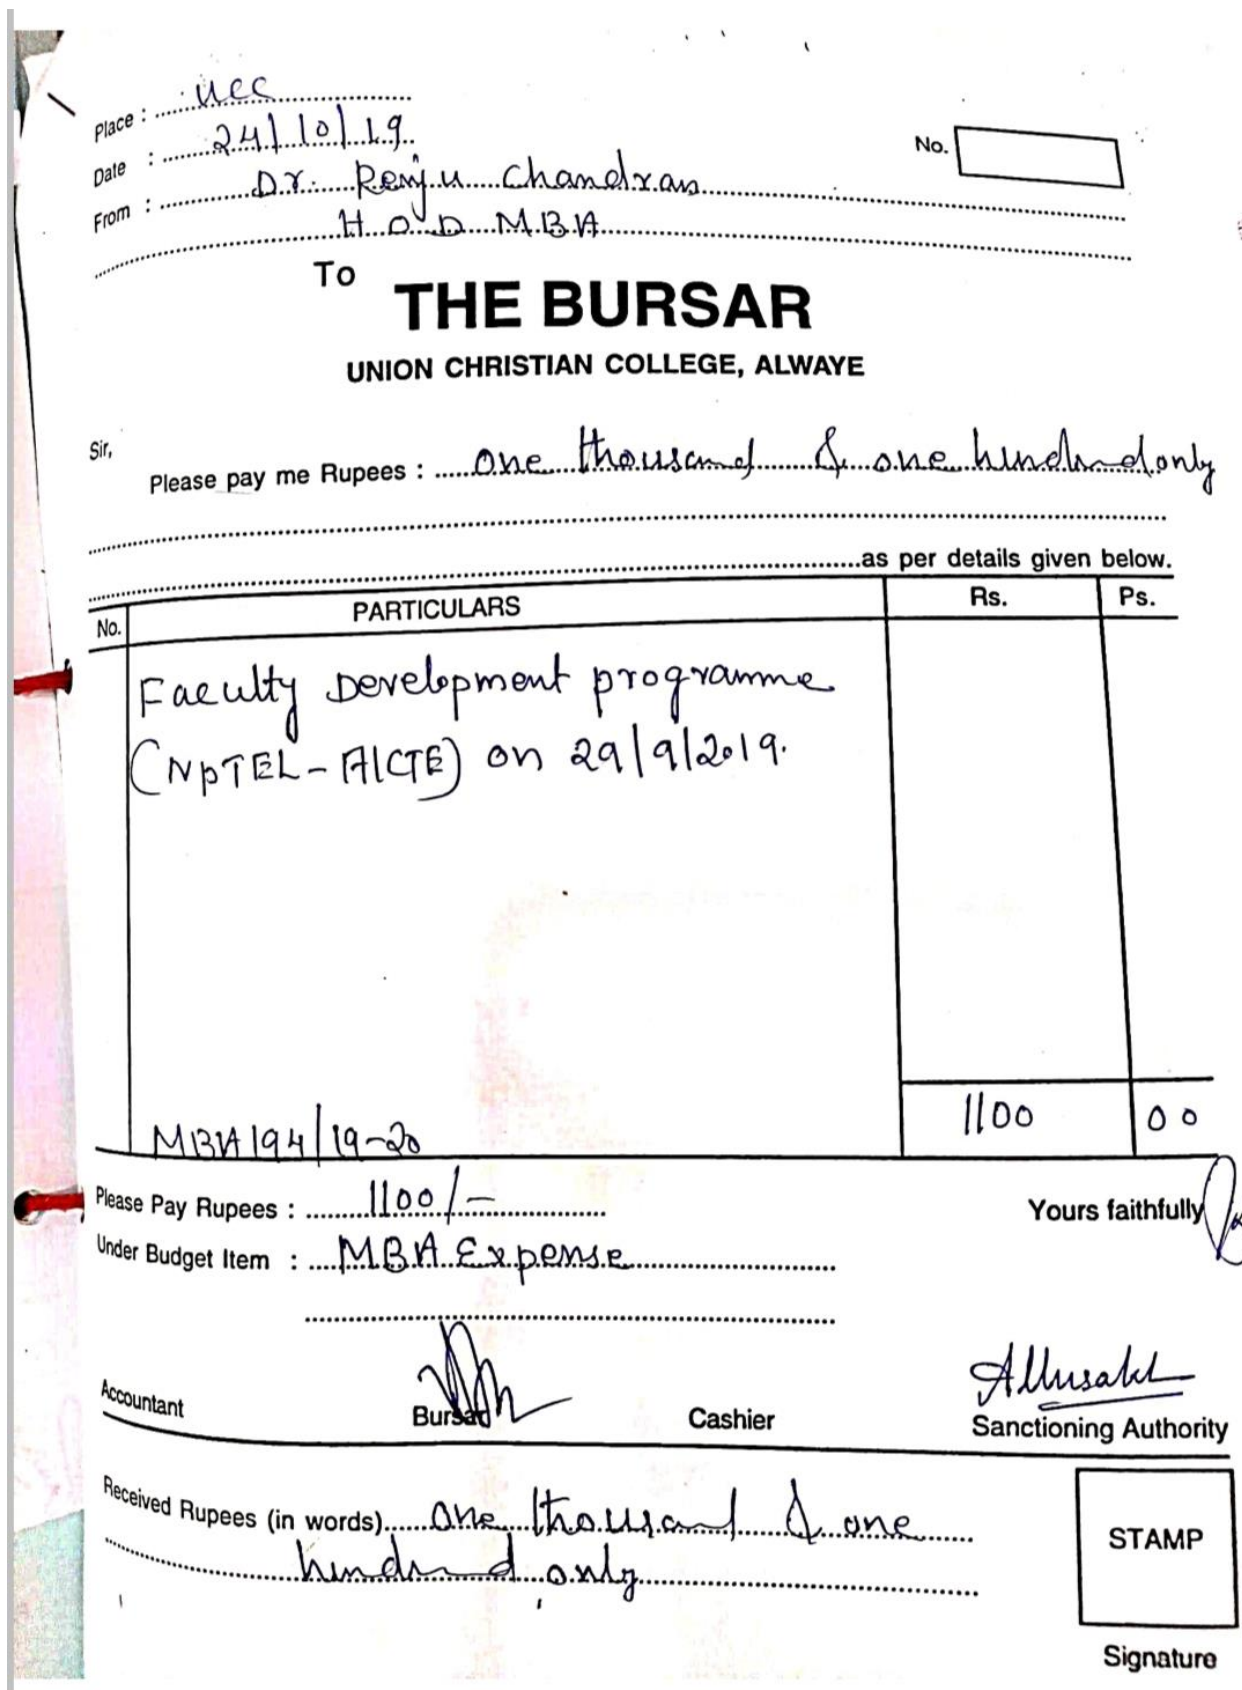 Place : UCC
Date : 24/10/19
No.
From : Dr. Renju Chandran
H.O.D MBA
To
THE BURSAR
UNION CHRISTIAN COLLEGE, ALWAYE
Sir,
Please pay me Rupees : One thousand & one hundred only
as per details given below.
No. PARTICULARS Rs. Ps.
Faculty Development programme
(NPTEL-AICTE) on 29/9/2019.
1100 00
MBA194/19-20
Please Pay Rupees : 1100/-
Yours faithfully
Under Budget Item : MBA Expense
Accountant Bursar Cashier Sanctioning Authority
Received Rupees (in words) One thousand & one
hundred only
STAMP
Signature